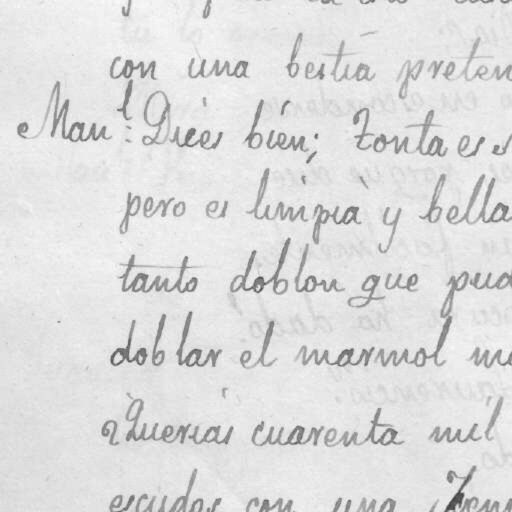 con una bestia preten
Man.l Dices bien; tonta es
pero es limpia y bella
tanto doblon que pud
doblar el marmol m
¿Querias cuarenta mil
escudos con una